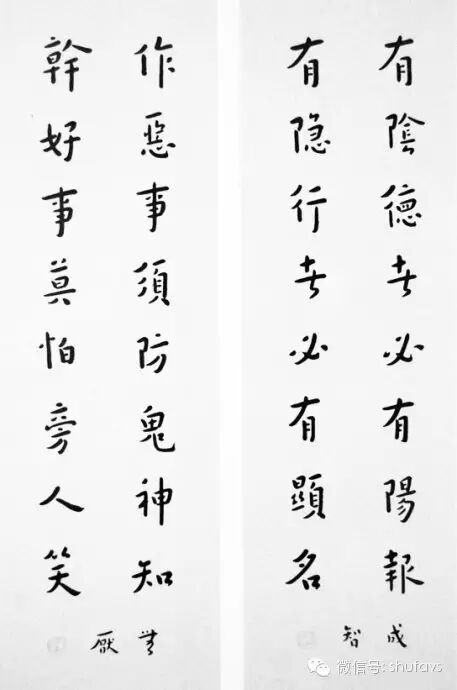 有陰德者必有陽報
有隐行者必有顯名
成智
作惡事須防鬼神知
幹好事莫怕旁人笑
無厭
微信号: shufavs